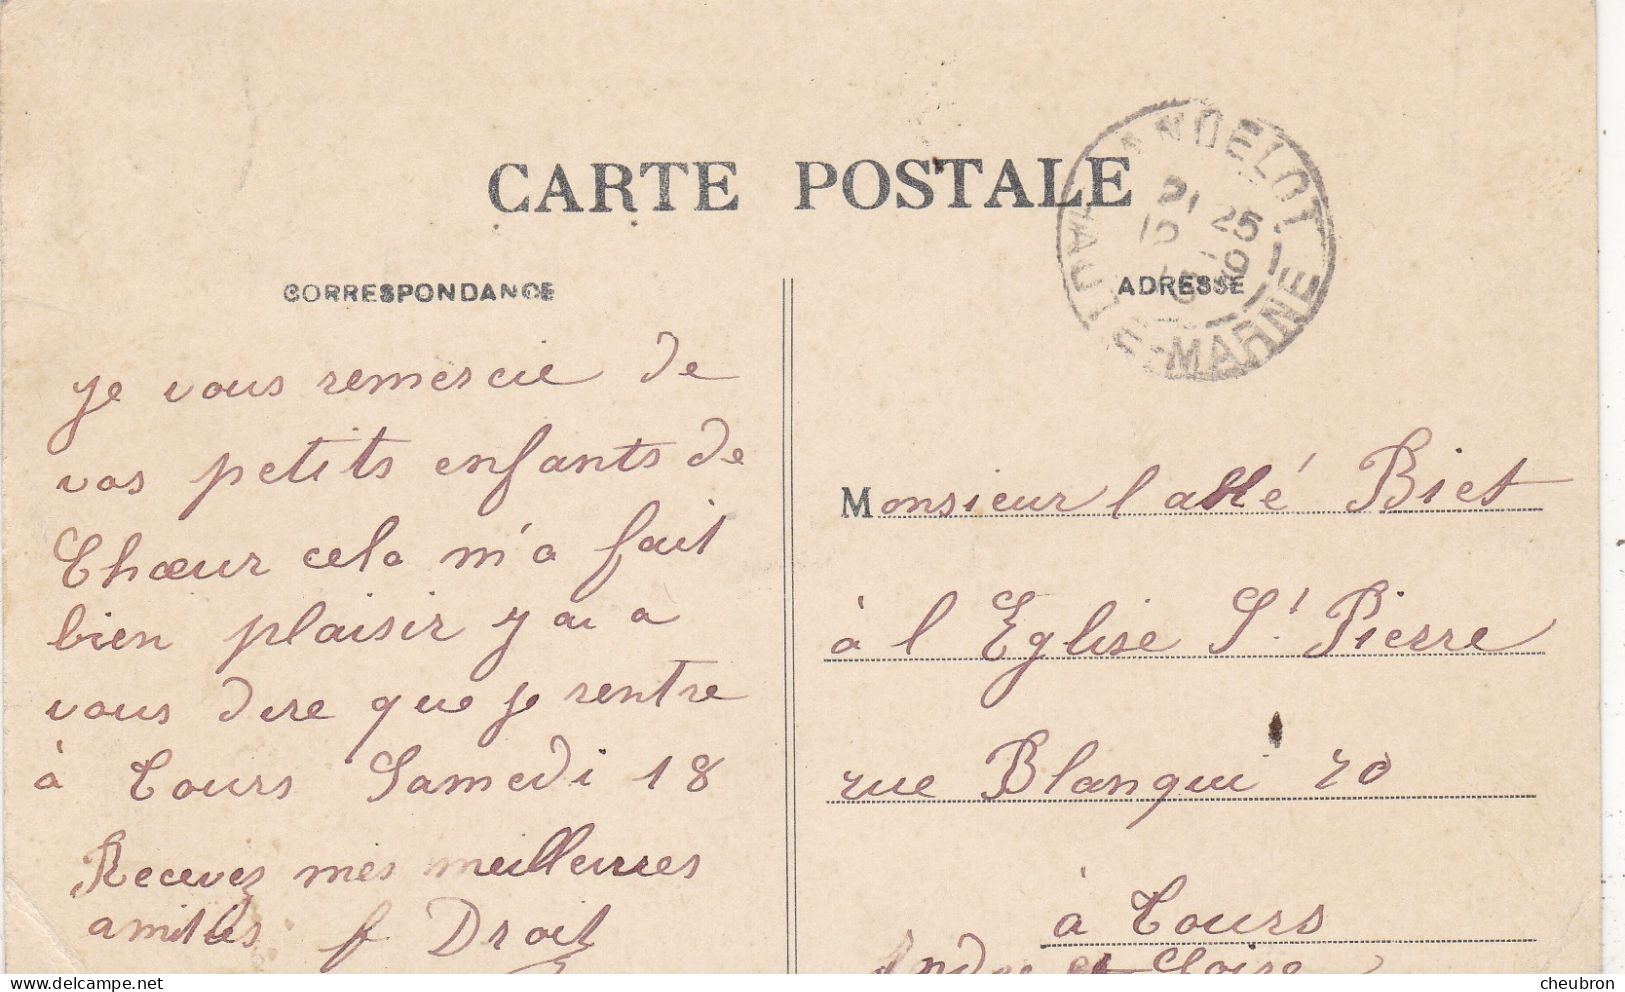 CARTE POSTALE
CORRESPONDANCE
ADRESSE
ANDELOT
Hte MARNE
je vous remercie de
vos petits enfants de
Chœur cela m'a fait
bien plaisir y ai a
vous dire que je rentre
à Tours Samedi 18
Recevez mes meilleures
amitiés f Droit
Monsieur l abbé Biet
à l Eglise St Pierre
rue Blanqui 70
à Tours
Indre et Loire
cheubron